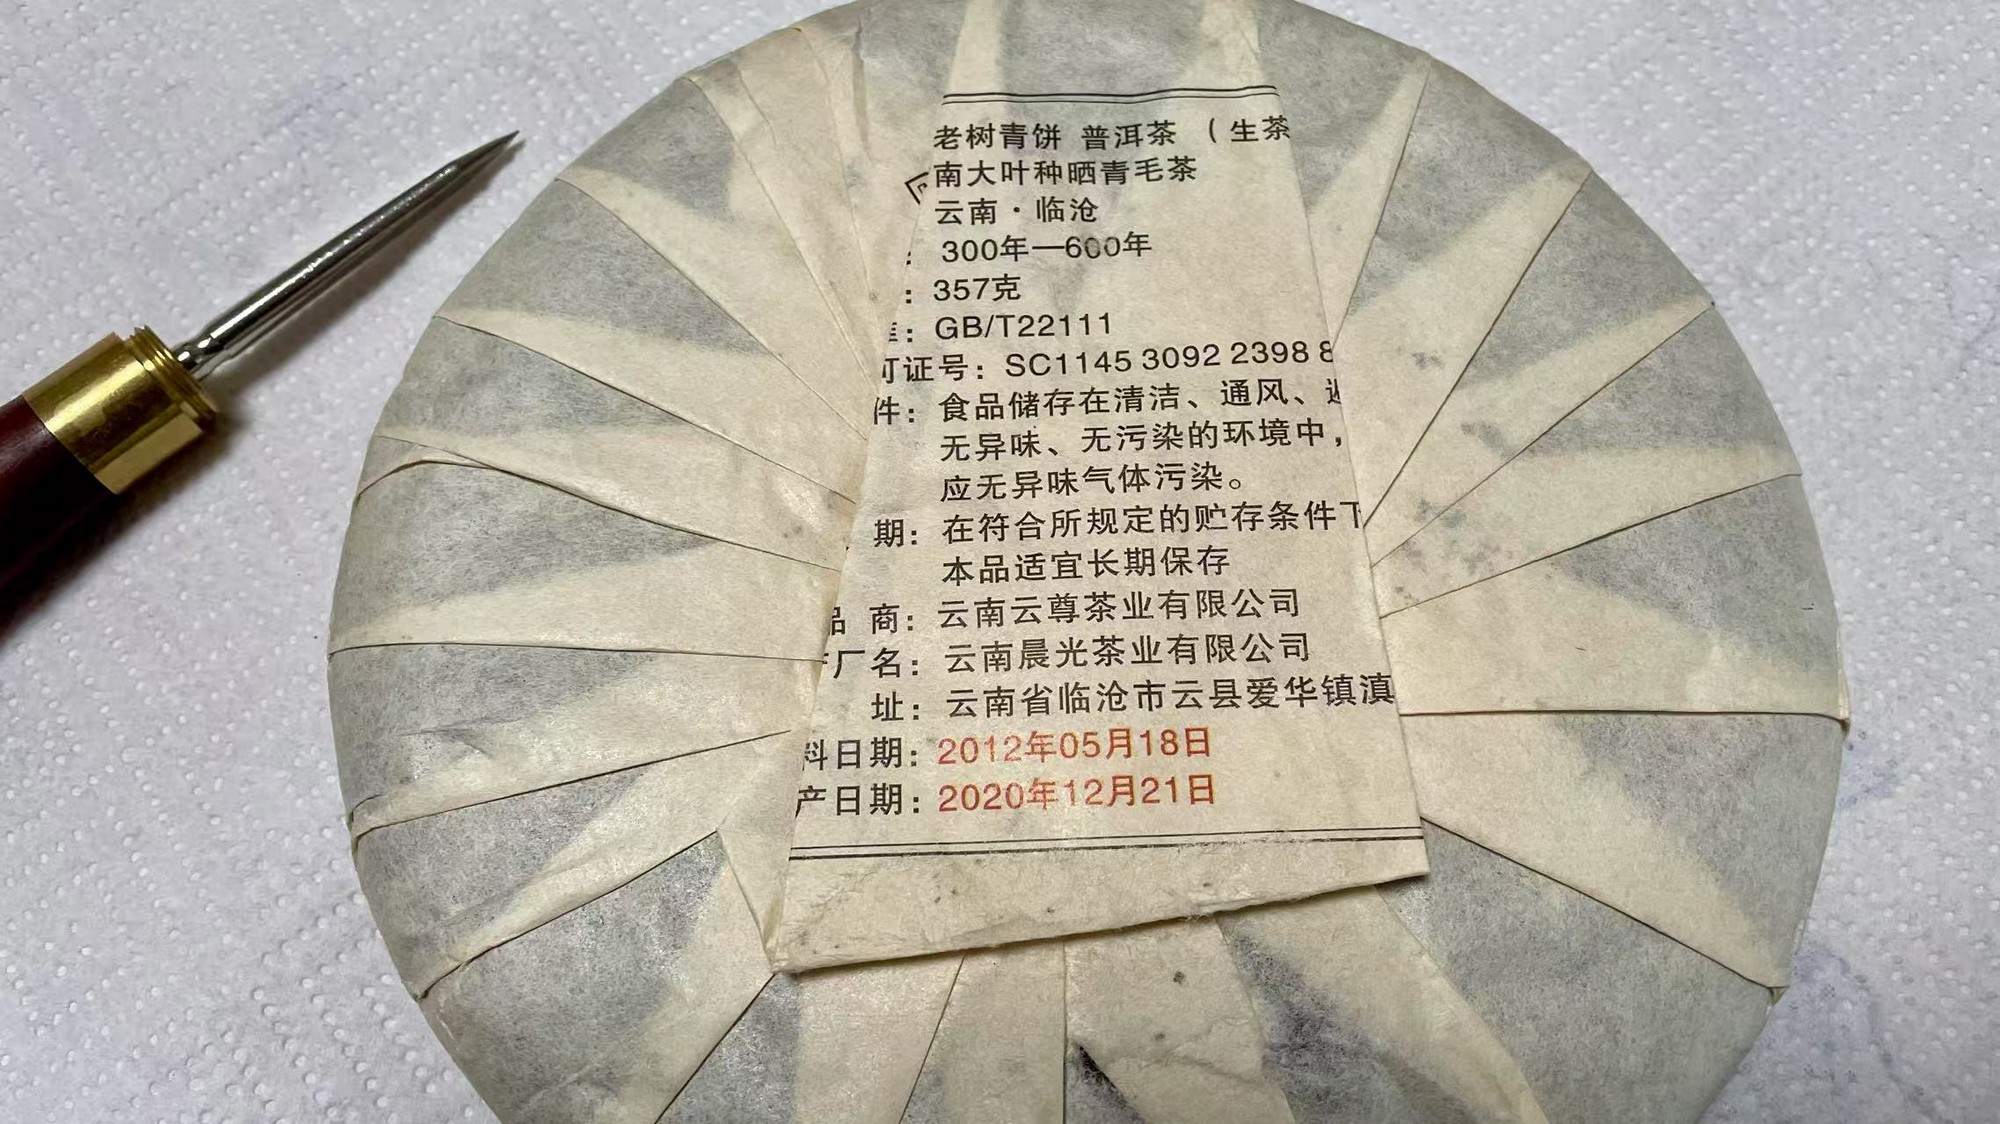 老树青饼 普洱茶 （生茶
南大叶种晒青毛茶
云南·临沧
: 300年—600年
: 357克
: GB/T22111
可证号: SC1145 3092 2398 8
件: 食品储存在清洁、通风、避
无异味、无污染的环境中，
应无异味气体污染。
期: 在符合所规定的贮存条件下
本品适宜长期保存
品 商: 云南云尊茶业有限公司
厂名: 云南晨光茶业有限公司
址: 云南省临沧市云县爱华镇滇
料日期: 2012年05月18日
产日期: 2020年12月21日